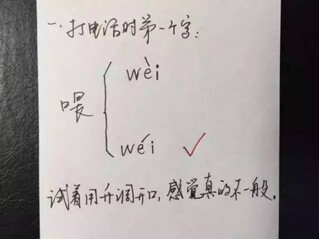 一、打电话时第一个字：
wèi
喂
wéi ✓
试着用升调开口，感觉真的不一般。